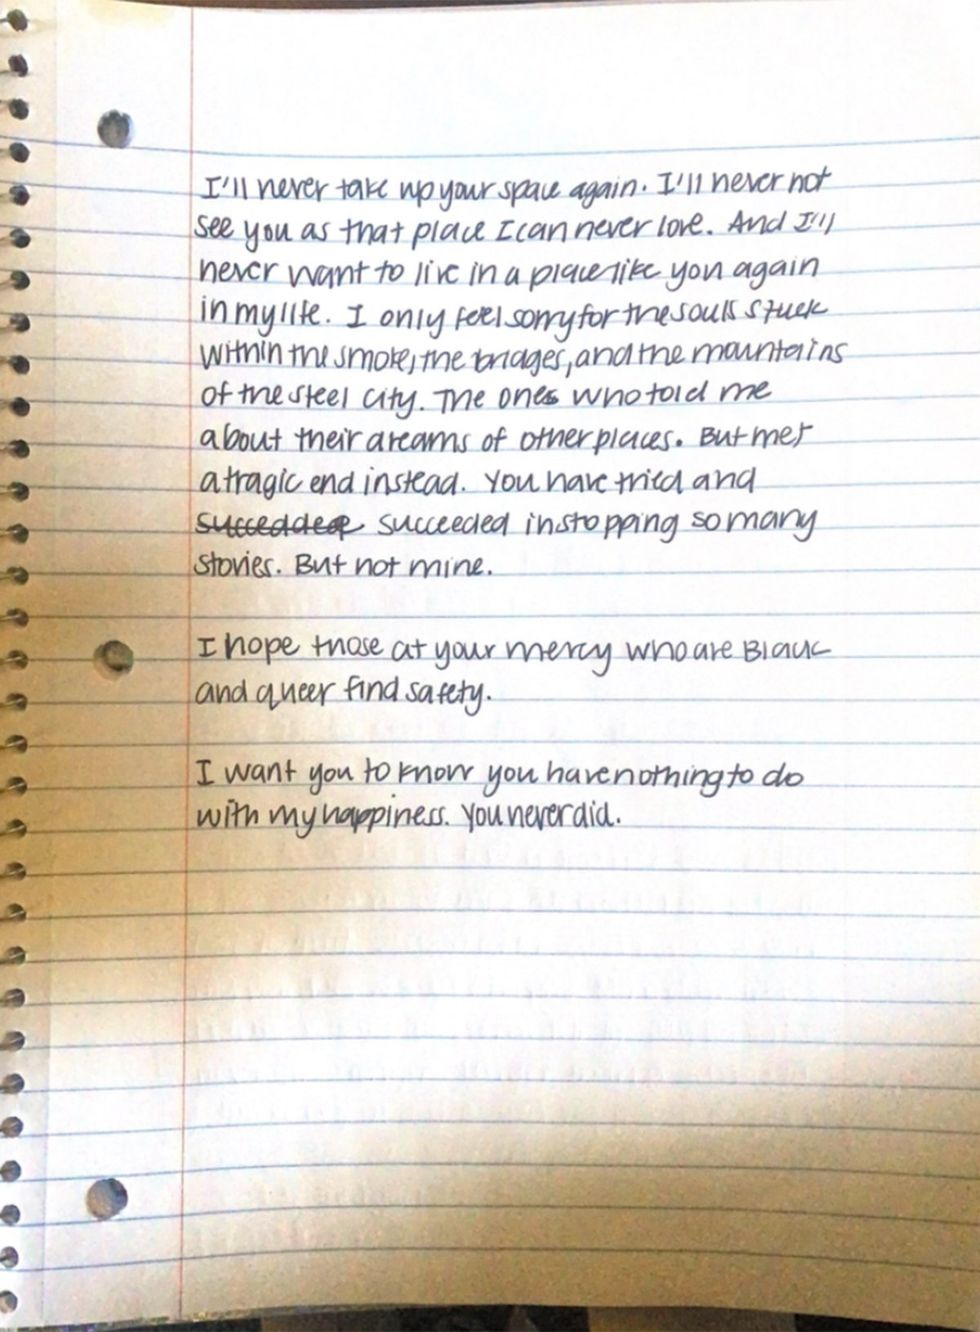 I'll never take up your space again. I'll never not
see you as that place I can never love. And I'll
never want to live in a place like you again
in my life. I only feel sorry for the souls stuck
within the smoke, the bridges, and the mountains
of the steel city. The ones who told me
about their dreams of other places. But met
a tragic end instead. You have tried and
succeddeed succeeded in stopping so many
stories. But not mine.
I hope those at your mercy who are Black
and queer find safety.
I want you to know you have nothing to do
with my happiness. You never did.